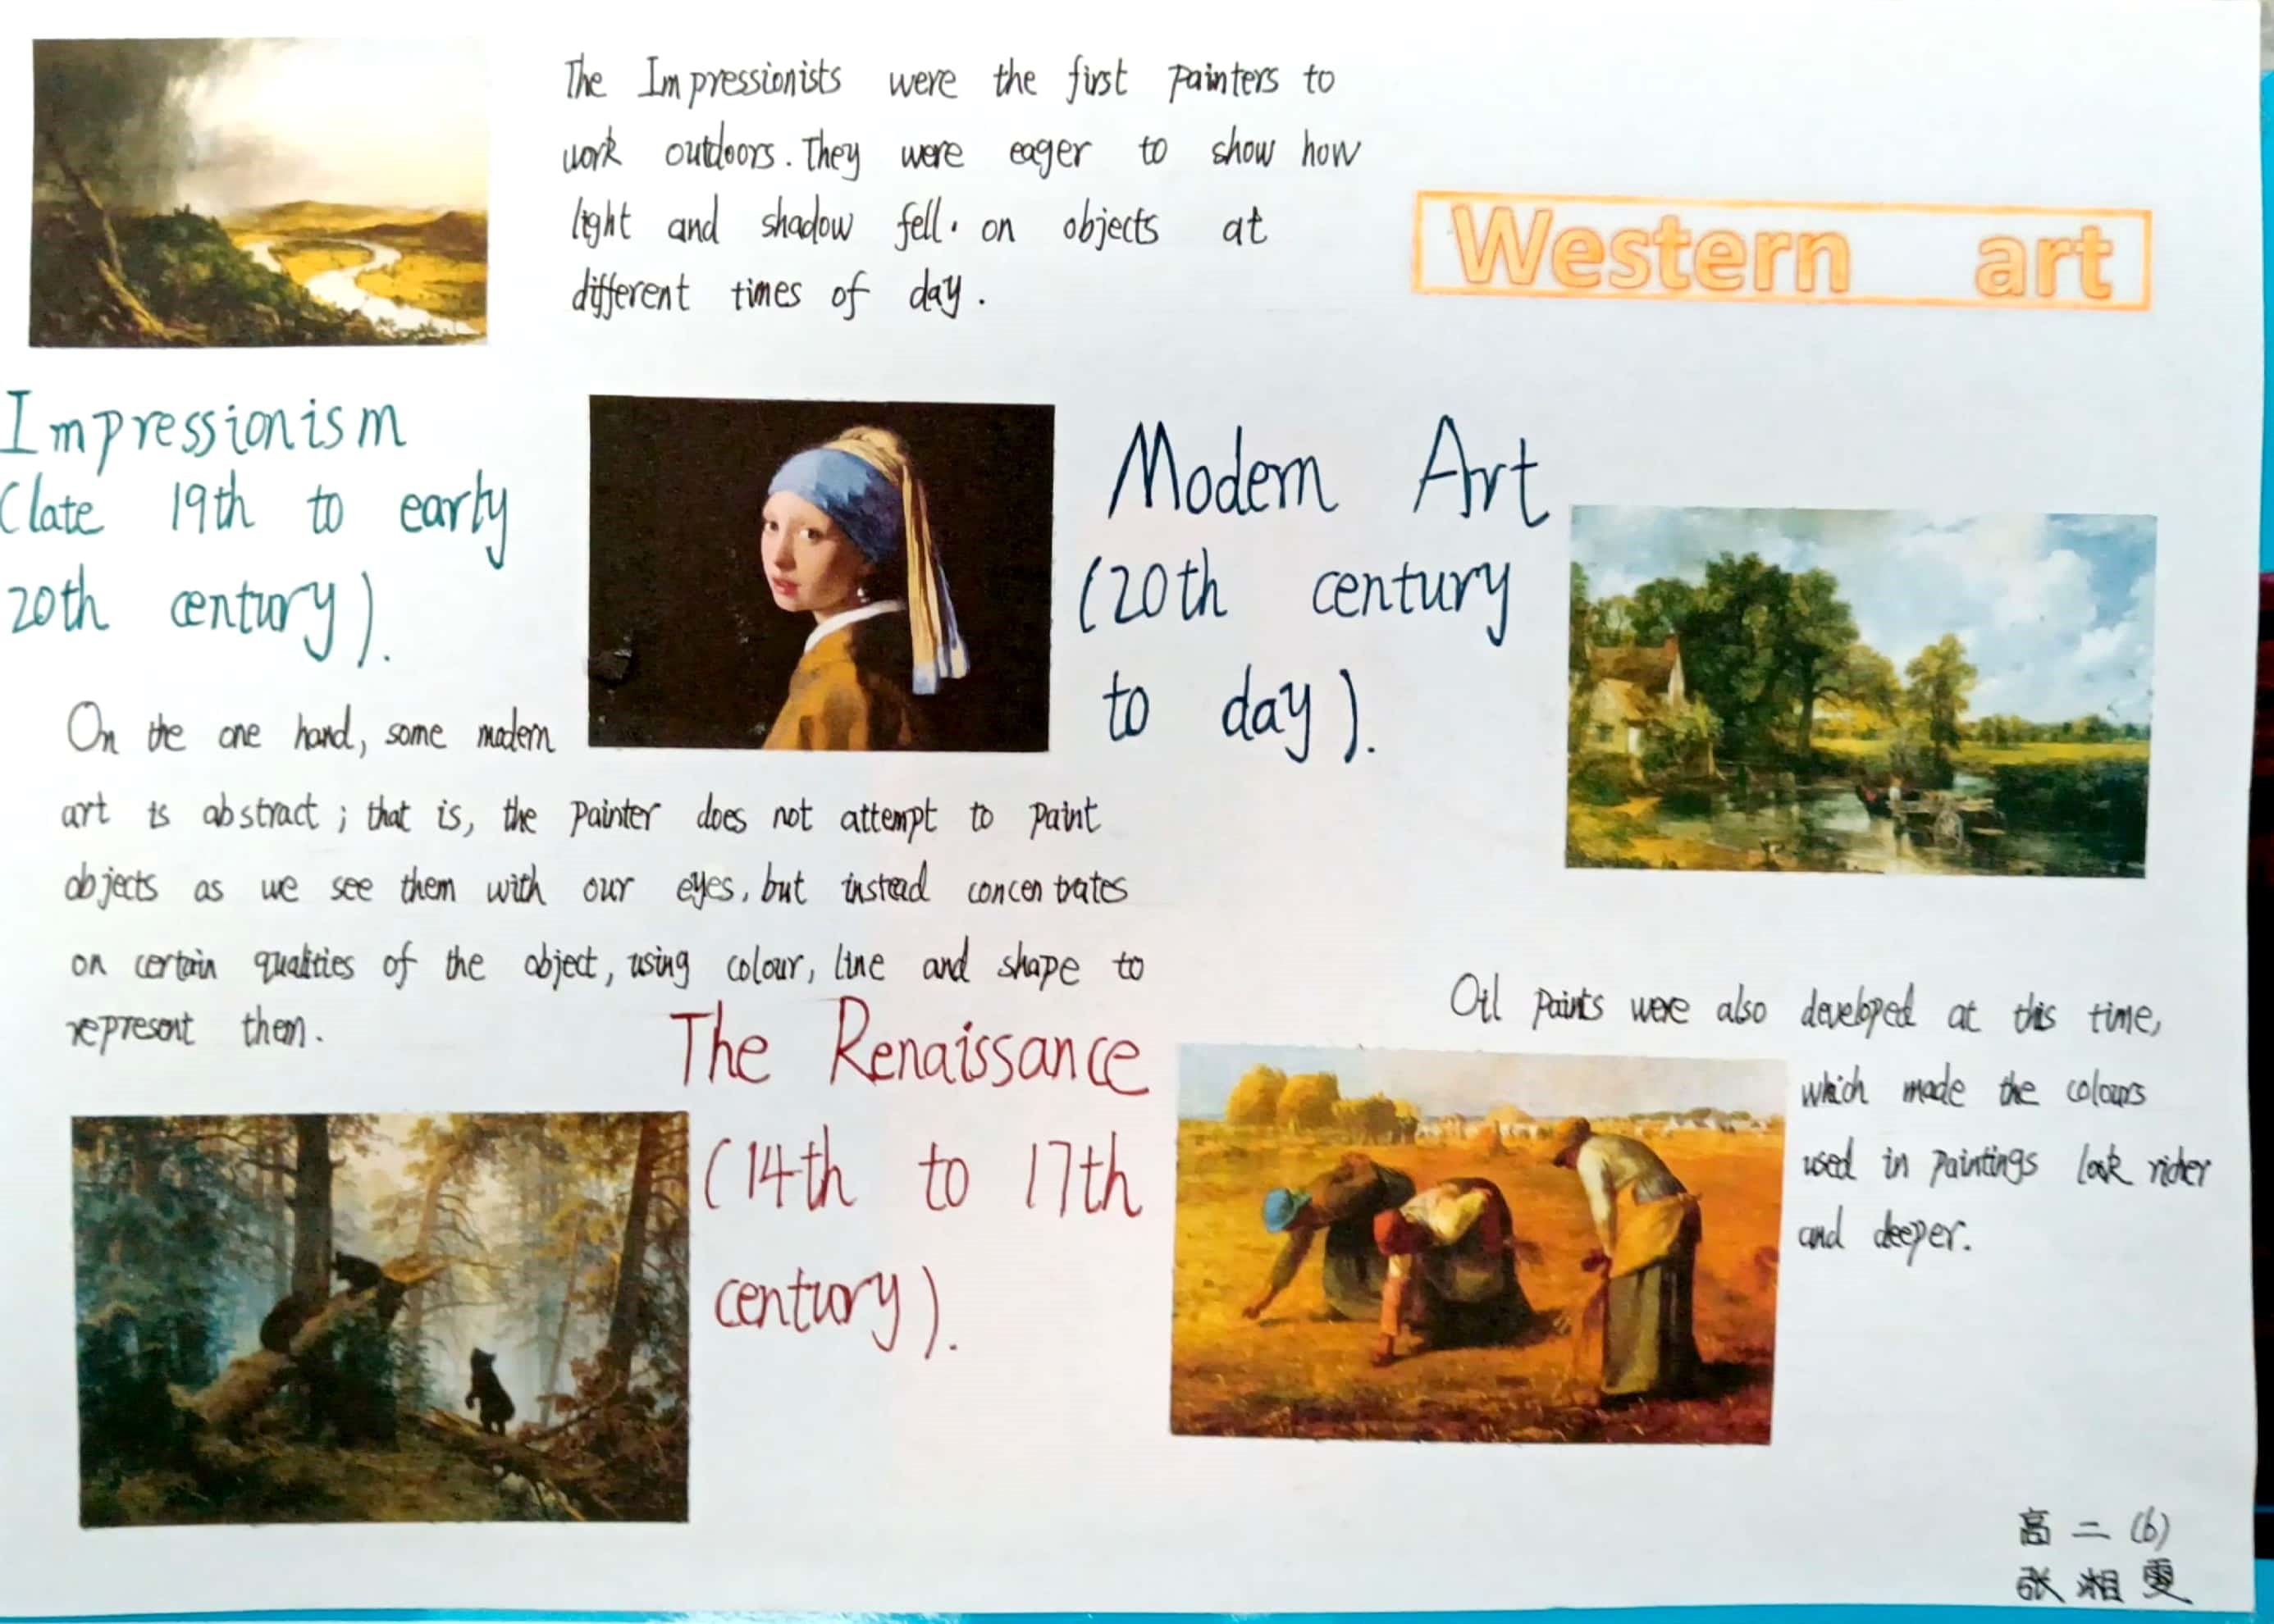 The Impressionists were the first painters to
work outdoors. They were eager to show how
light and shadow fell. on objects at
different times of day.
Western art
Impressionism
(late 19th to early
20th century).
Modern Art
(20th century
to day).
On the one hand, some modern
art is abstract; that is, the painter does not attempt to paint
objects as we see them with our eyes, but instead concentrates
on certain qualities of the object, using colour, line and shape to
represent them.
The Renaissance
(14th to 17th
century).
Oil paints were also developed at this time,
which made the colours
used in paintings look richer
and deeper.
高二(6)
张湘雯